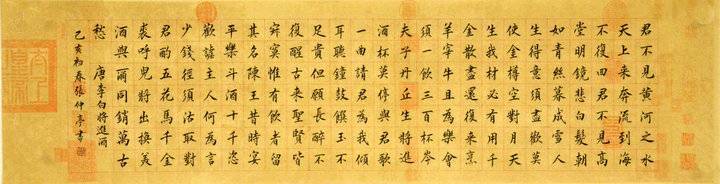 君不見黃河之水
天上来奔流到海
不復回君不見高
堂明鏡悲白髮朝
如青絲暮成雪人
生得意須盡歡莫
使金樽空對月天
生我材必有用千
金散盡還復来烹
羊宰牛且為樂會
須一飲三百杯岑
夫子丹丘生將進
酒杯莫停與君歌
一曲請君為我傾
耳聽鐘鼓饌玉不
足貴但願長醉不
復醒古来聖賢皆
寂寞惟有飲者留
其名陳王昔時宴
平樂斗酒十千恣
歡謔主人何為言
少錢徑須沽取對
君酌五花馬千金
裘呼兒將出換美
酒與爾同銷萬古
愁 唐李白將進酒
己亥初春張仲亭書